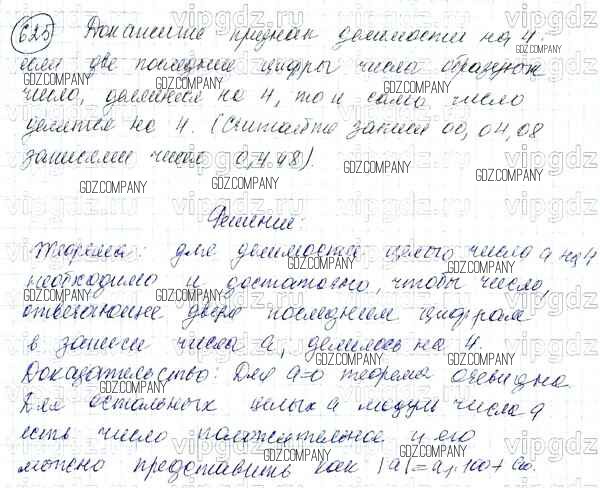 625 Докажите признак делимости на 4:
если две последние цифры числа образуют
число, делящееся на 4, то и само число
делится на 4. (Считайте записи 00, 04, 08
записями чисел 0, 4, 8).
Решение:
Теорема: для делимости целого числа a на 4
необходимо и достаточно, чтобы число,
отвечающее двум последним цифрам
в записи числа a, делилось на 4.
Доказательство: Для a=0 теорема очевидна
Для остальных целых a модуль числа a
есть число положительное и его
можно представить как |a|=a₁·100+a₀.
GDZ.COMPANY
vipgdz